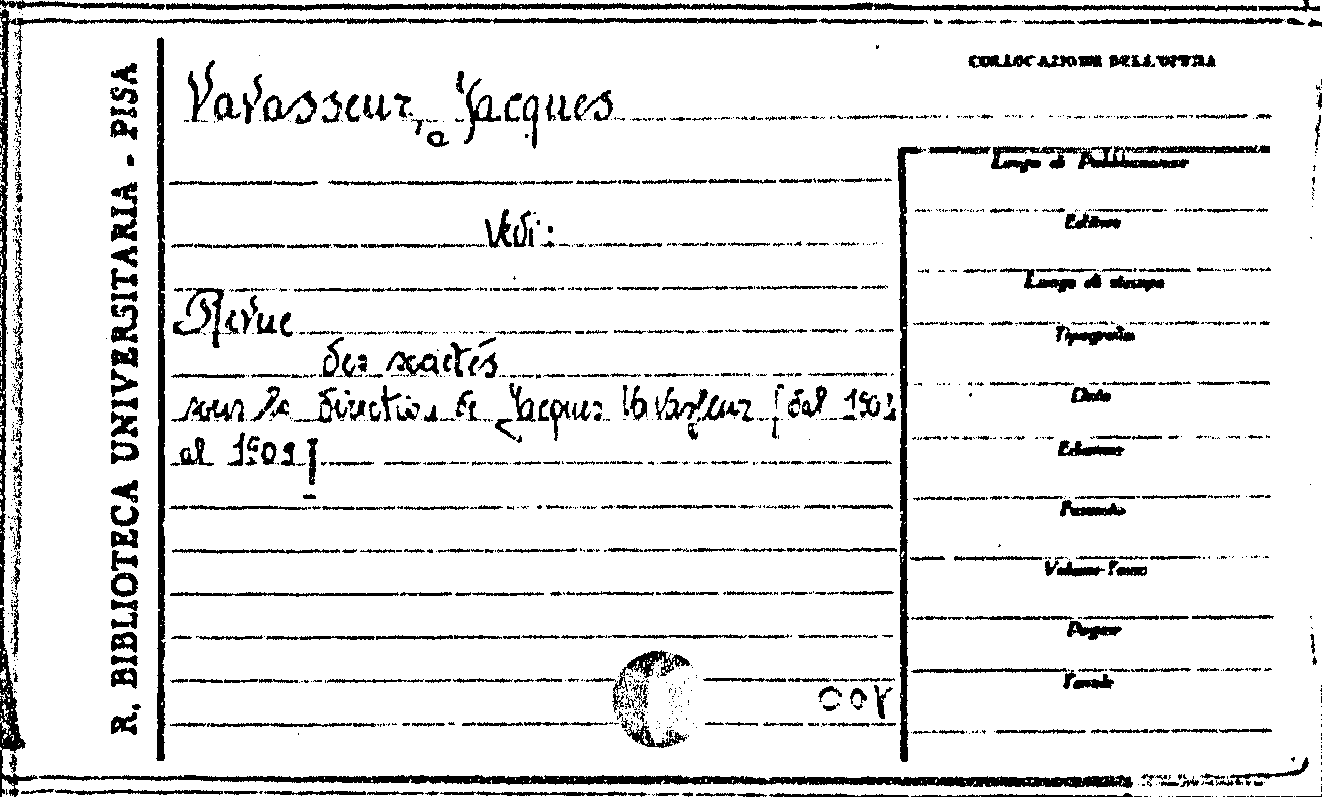 R. BIBLIOTECA UNIVERSITARIA - PISA
COLLOCAZIONE DELL'OPERA
Vavasseur, Jacques
Vedi:
Revue
des sociétés
sous la direction de Jacques Vavasseur [dal 1903
al 1909]
Luogo di Pubblicazione
Editore
Luogo di stampa
Tipografia
Data
Edizione
Formato
Volume-Tomo
Pagine
Tavole